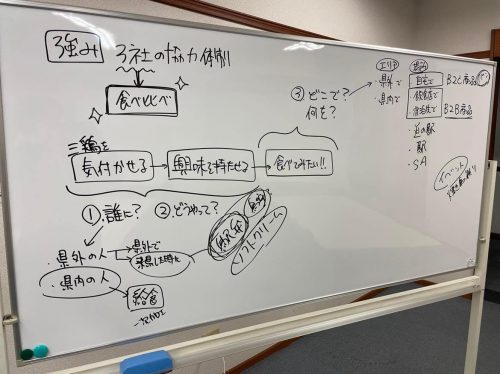 強み 3社の協力体制!!
食べ比べ
三鶏を
気付かせる → 興味を持たせる → 食べてみたい!!
①誰に? ②どうやって?
・県外の人
・県内の人
県外で
来県した時に
給食
ソフトクリーム
③どこで?
何を?
エリア
・県外で
・県内で
自宅で B2C商品
・飲食店で
・宿泊先で B2B商品
・道の駅
・駅
・SA
イベント